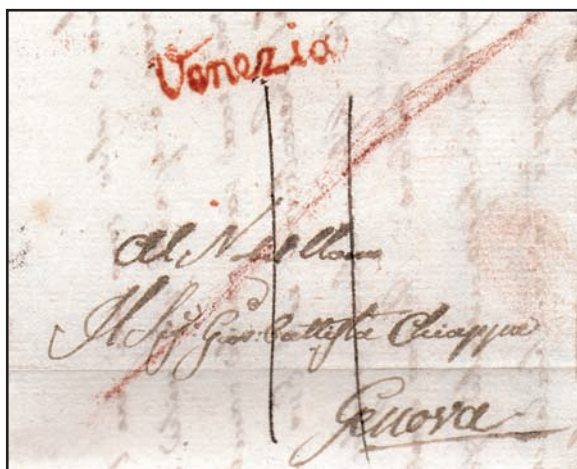 Venezia
Al Nob
Il Sig.r Gio: Battista Chiappe
Genova